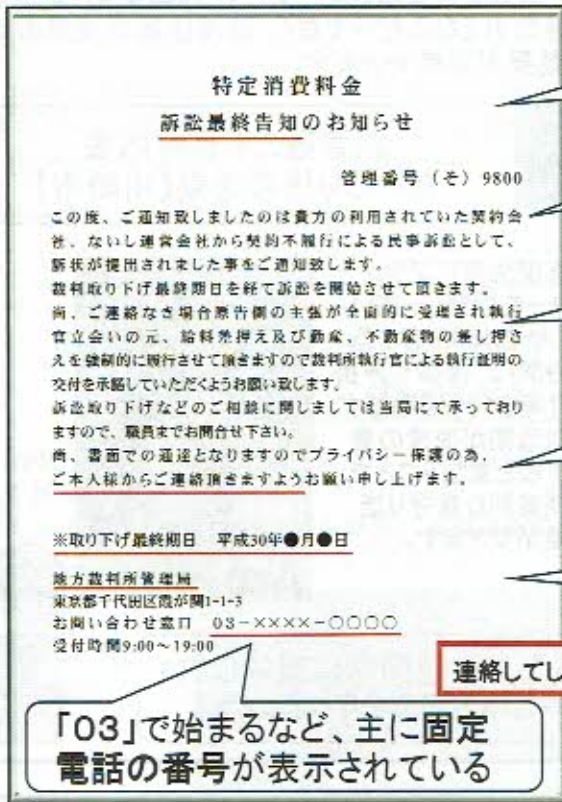 特定消費料金
訴訟最終告知のお知らせ
管理番号（そ）9800
この度、ご通知致しましたのは貴方の利用されていた契約会
社、ないし運営会社から契約不履行による民事訴訟として、
訴状が提出されました事をご通知致します。
裁判取り下げ最終期日を経て訴訟を開始させて頂きます。
尚、ご連絡なき場合原告側の主張が全面的に受理され執行
官立会いの元、給料差押え及び動産、不動産物の差し押さ
えを強制的に履行させて頂きますので裁判所執行官による執行証明の
交付を承諾していただくようお願い致します。
訴訟取り下げなどのご相談に関しましては当局にて承っており
ますので、職員までお問合せ下さい。
尚、書面での通達となりますのでプライバシー保護の為、
ご本人様からご連絡頂きますようお願い申し上げます。
※取り下げ最終期日　平成30年●月●日
地方裁判所管理局
東京都千代田区霞が関1-1-3
お問い合わせ窓口　03-××××-○○○○
受付時間9:00～19:00
連絡してし
「03」で始まるなど、主に固定
電話の番号が表示されている